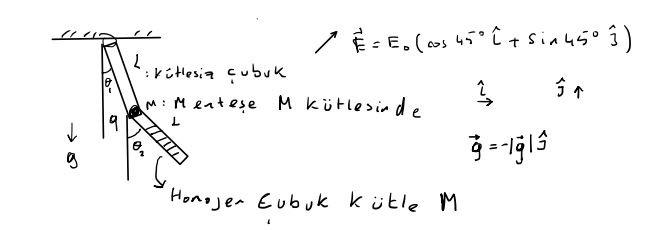 E⃗ = E₀ (cos 45° î + sin 45° ĵ)
L : kütlesiz çubuk
θ₁
M : Menteşe M kütlesinde
î ĵ
q L
g θ₂
g⃗ = -|g⃗| ĵ
Homojen Çubuk kütle M